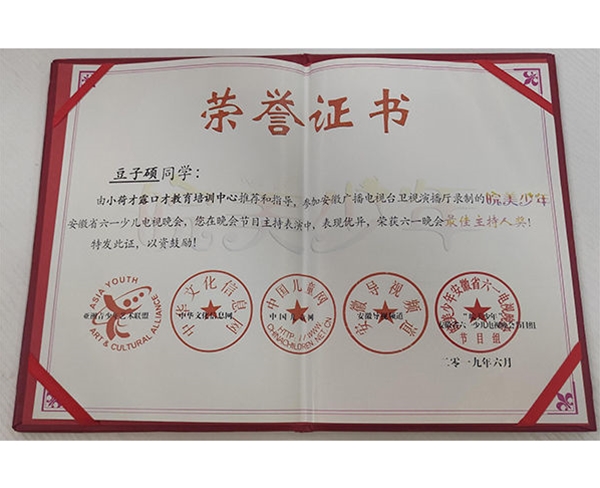 荣誉证书
豆子硕同学：
由小荷才露口才教育培训中心推荐和指导，参加安徽广播电视台卫视演播厅录制的皖美少年
安徽省六一少儿电视晚会，您在晚会节目主持表演中，表现优异，荣获六一晚会最佳主持人奖！
特发此证，以资鼓励！
ASIA YOUTH
亚洲青少年艺术联盟
ART & CULTURAL ALLIANCE
中华文化信息网
中华文化信息网
中国儿童网
中国儿童网
HTTP://WWW.
CHINACHILDREN.NET.CN
安徽导视频道
安徽导视频道
少年安徽省六一电视晚
安徽省六一少儿电视晚会节目组
节目组
二零一九年六月